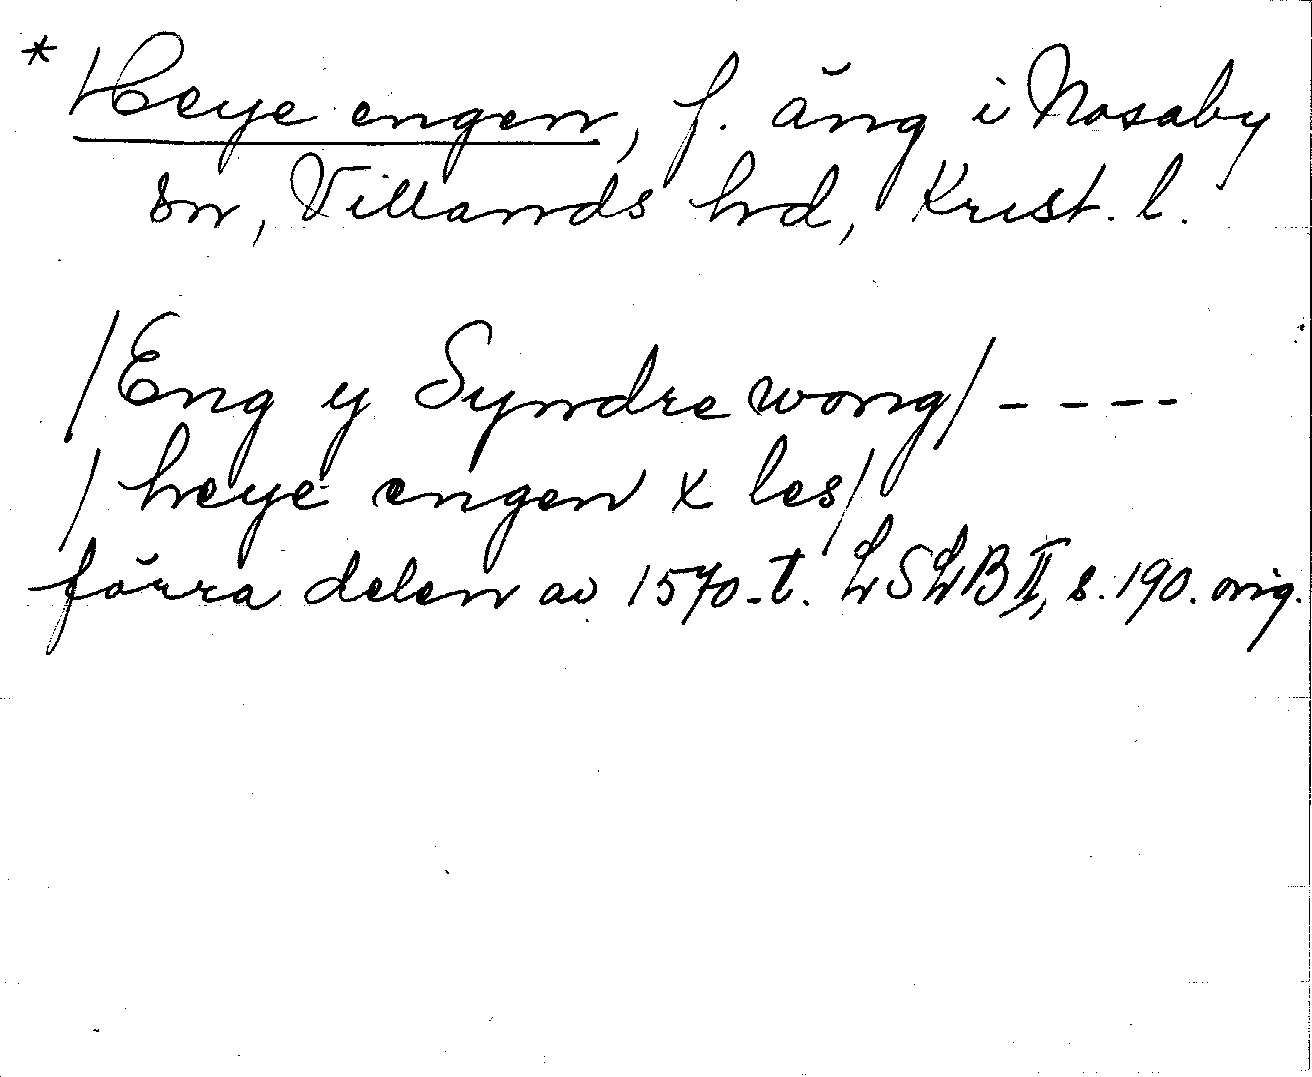 * Heye engen, f. äng i Nosaby
sn, Villands hrd, Krist. l.
/Eng y Syndre wong/ - - - -
/ heye engen x les/
förra delen av 1570-t. LSLB II, s. 190. orig.